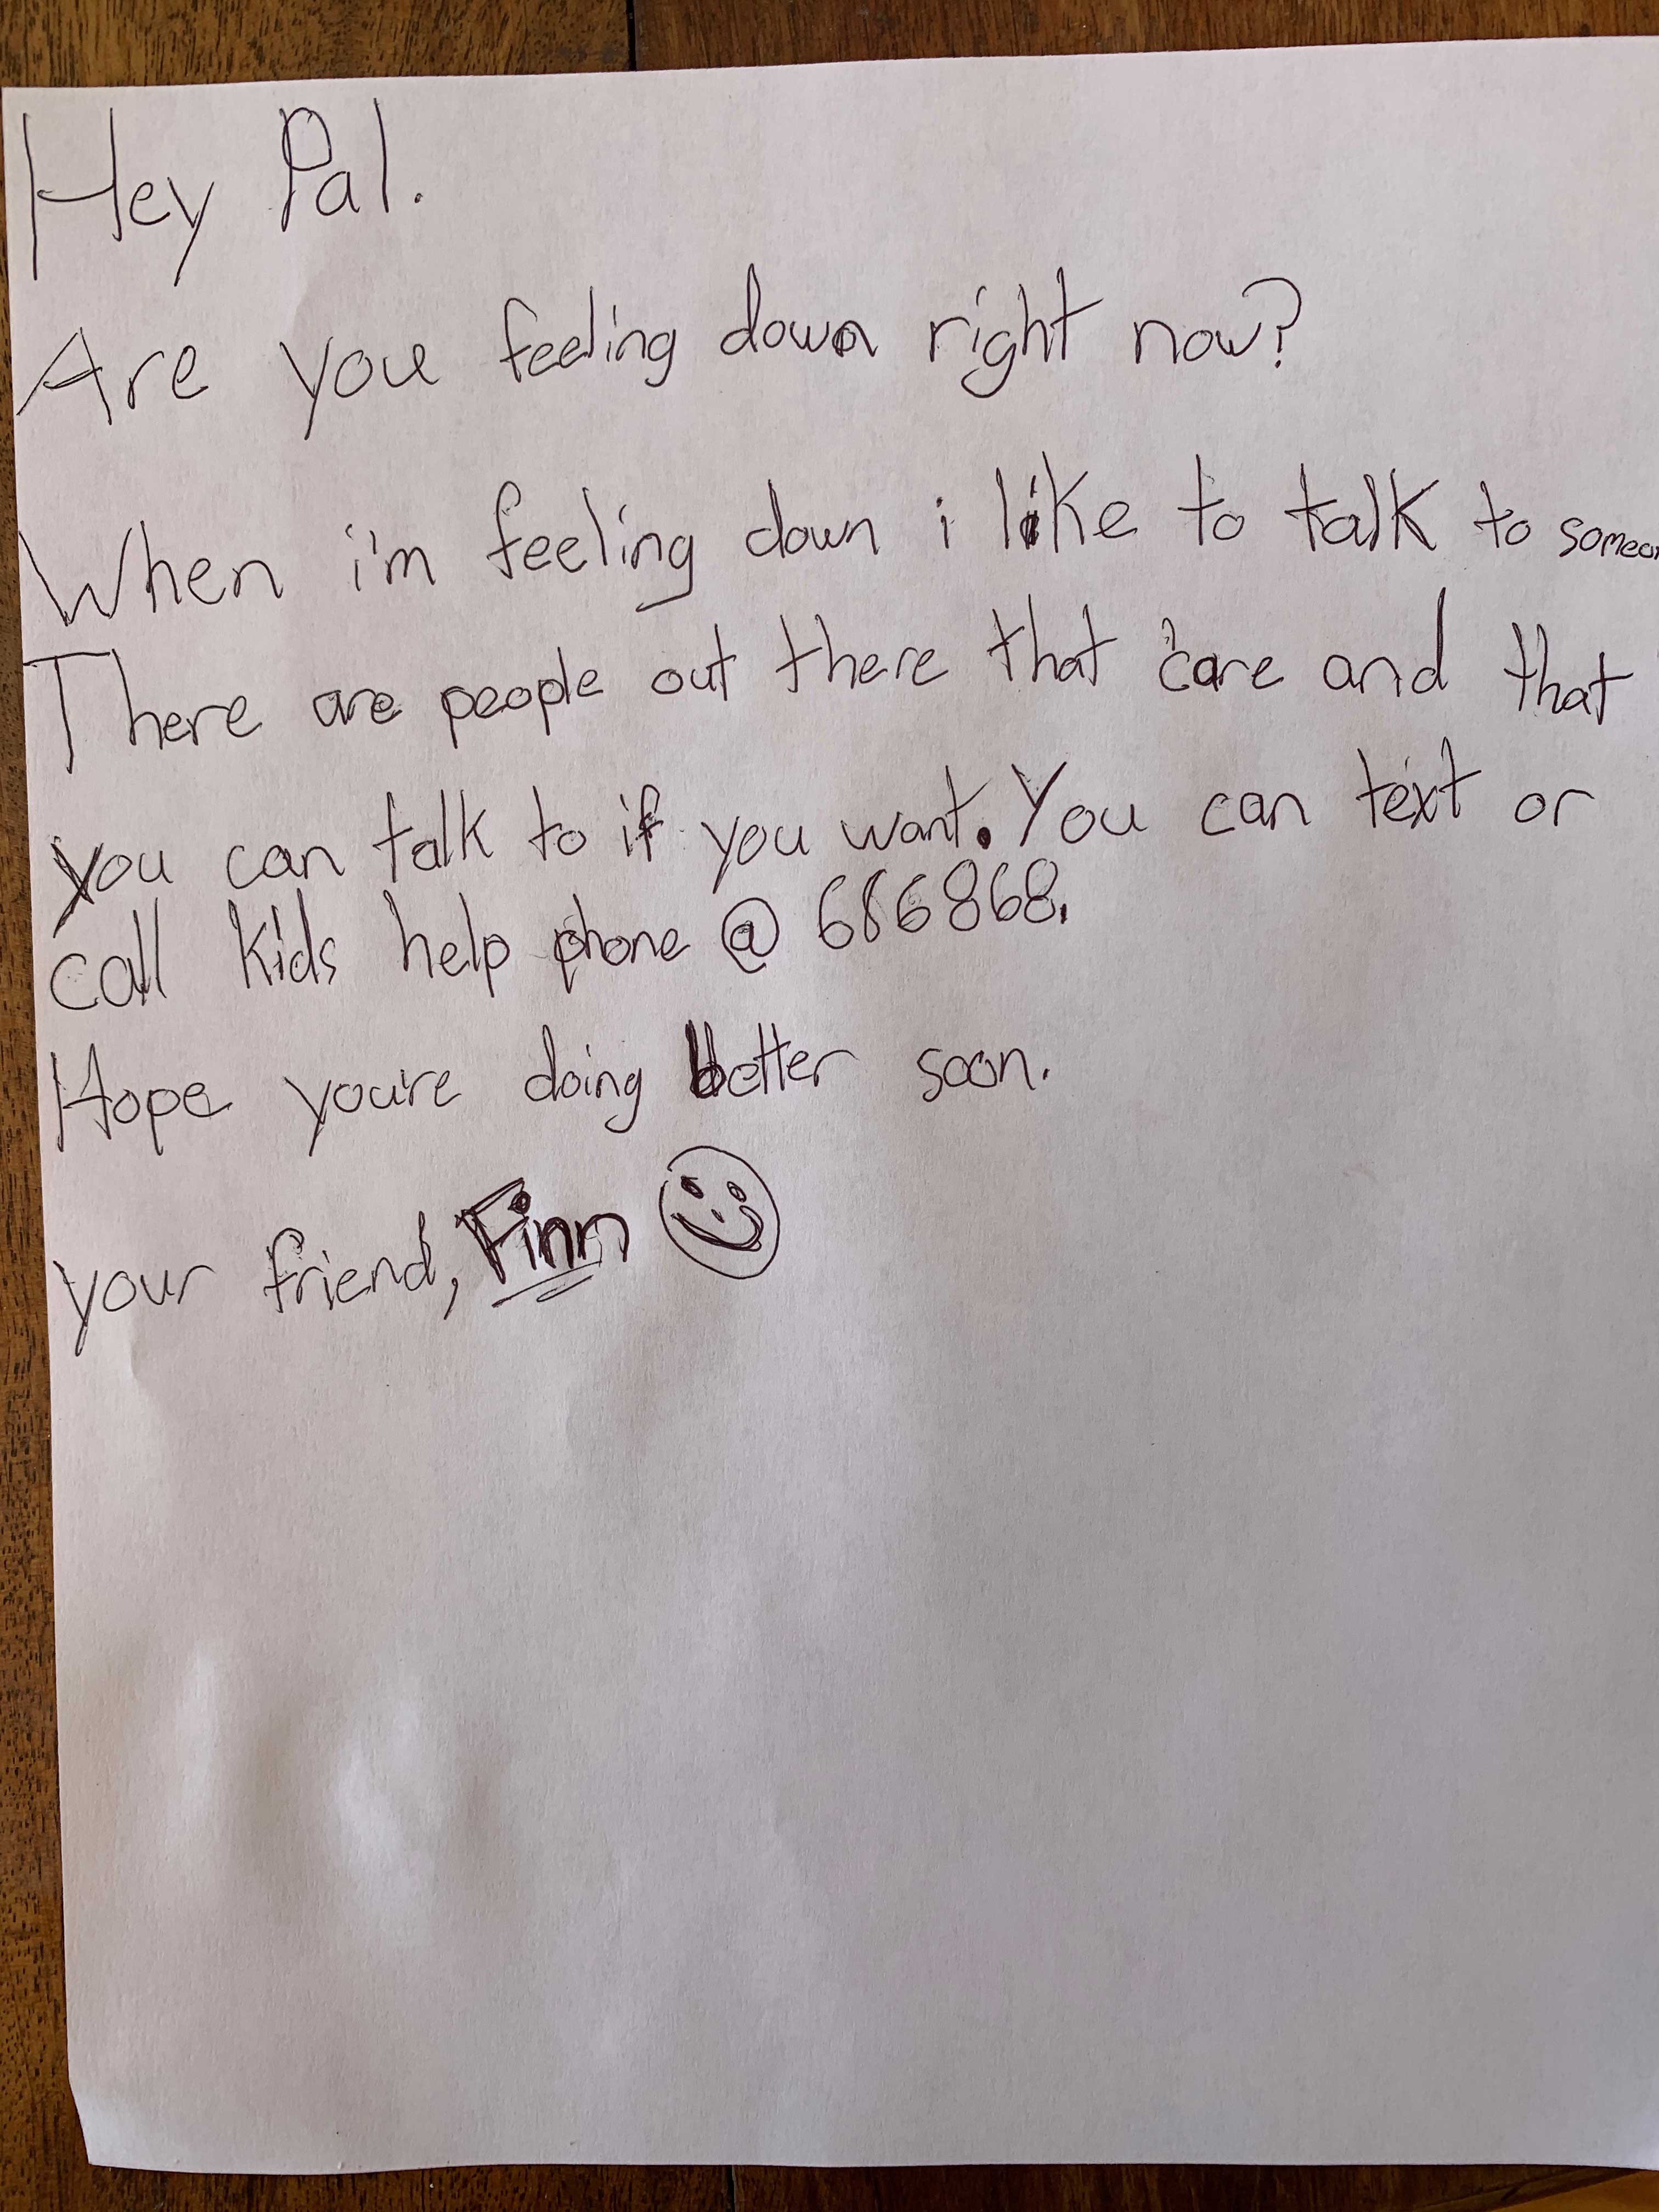 Hey Pal.
Are you feeling down right now?
When i'm feeling down i like to talk to someon
There are people out there that care and that
you can talk to if you want. You can text or
call Kids help phone @ 686868.
Hope you're doing better soon.
your friend, Finn